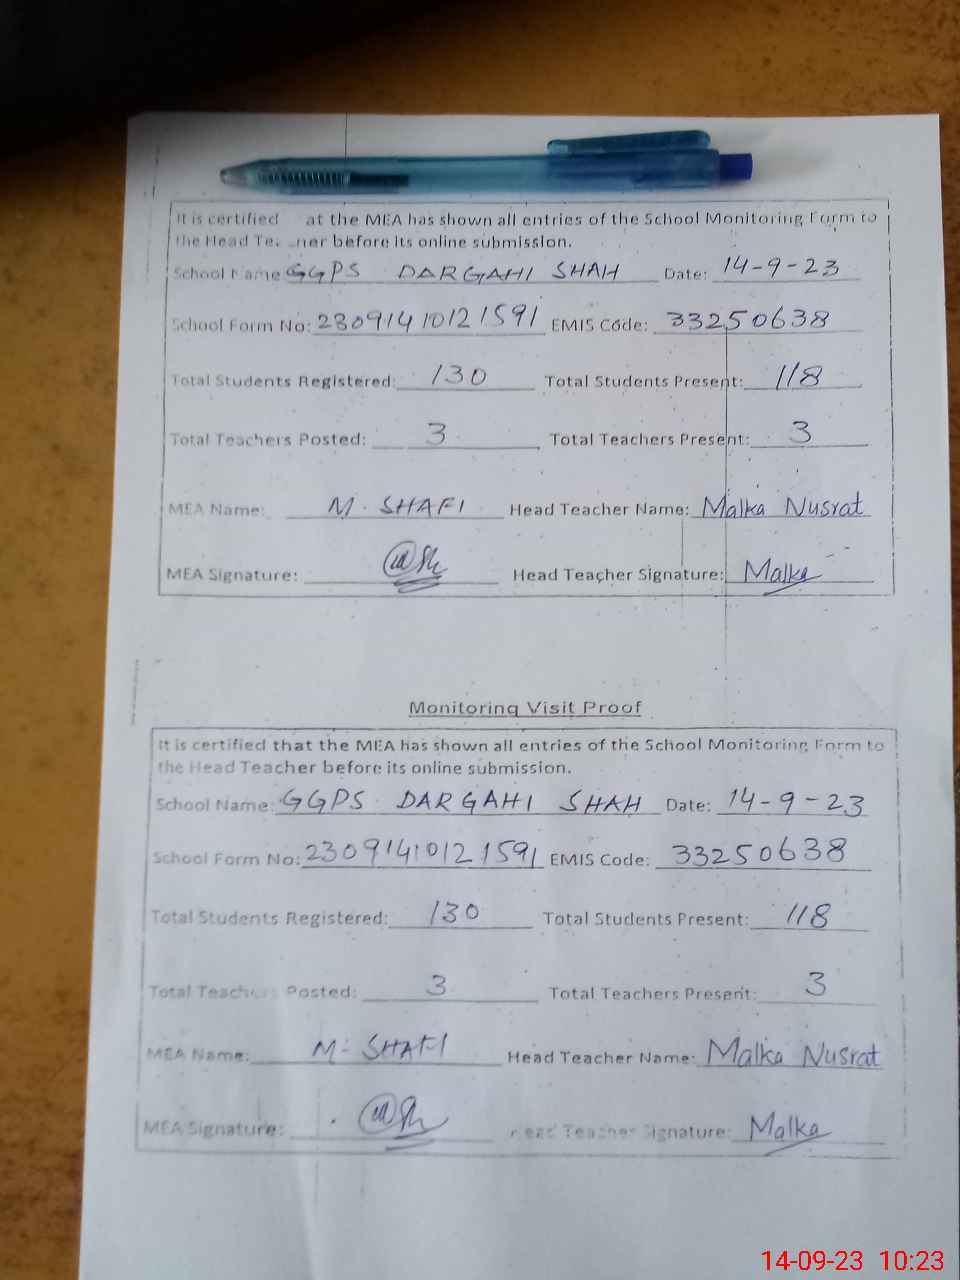 It is certified at the MEA has shown all entries of the School Monitoring Form to
the Head before its online submission.
School Name GGPS DARGAHI SHAH Date: 14-9-23
School Form No: 23091410121591 EMIS Code: 33250638
Total Students Registered: 130 Total Students Present: 118
Total Teachers Posted: 3 Total Teachers Present: 3
MEA Name: M. SHAFI Head Teacher Name: Malka Nusrat
MEA Signature: Head Teacher Signature: Malka
Monitoring Visit Proof
It is certified that the MEA has shown all entries of the School Monitoring Form to
the Head Teacher before its online submission.
School Name: GGPS DARGAHI SHAH Date: 14-9-23
School Form No: 23091410121591 EMIS Code: 33250638
Total Students Registered: 130 Total Students Present: 118
Total Teachers Posted: 3 Total Teachers Present: 3
MEA Name: M. SHAFI Head Teacher Name: Malka Nusrat
MEA Signature: Head Teacher Signature: Malka
14-09-23 10:23